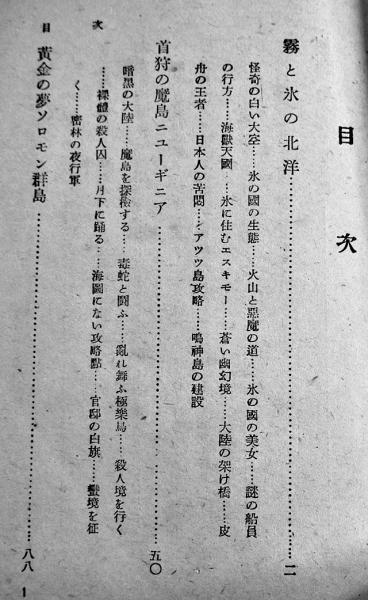 目次
霧と氷の北洋……………………二
怪奇の白い大空……氷の國の生態……火山と惡魔の道……氷の國の美女……謎の船員
の行方……海獸天國……氷に住むエスキモー……蒼い幽幻境……大陸の架け橋……皮
舟の王者……日本人の苦悶……アッツ島攻略……鳴神島の建設
首狩の魔島ニューギニア……………………五〇
暗黑の大陸……魔島を探檢する……毒蛇と鬪ふ……亂れ舞ふ極樂鳥……殺人境を行く
……裸體の殺人囚……月下に踊る……海圖にない攻略點……官邸の白旗……蠻境を征
く……密林の夜行軍
黃金の夢ソロモン群島……………………八八
目次
1